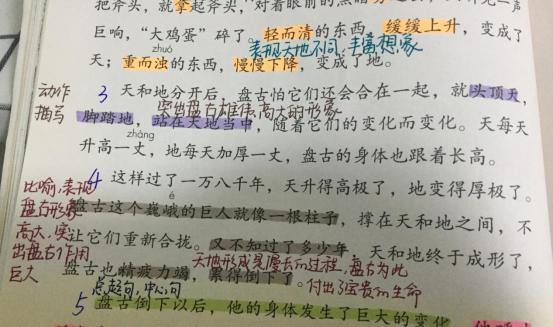 把斧头,就拿起斧头,对着眼前的黑暗
巨响,“大鸡蛋”碎了。轻而清的东西,缓缓上升,变成了
zhuó
表现天地不同,丰富想象
天;重而浊的东西,慢慢下降,变成了地。
动作
描写
3 天和地分开后,盘古怕它们还会合在一起,就头顶天,
突出盘古雄伟、高大的形象
脚踏地,站在天地当中,随着它们的变化而变化。天每天
zhàng
升高一丈,地每天加厚一丈,盘古的身体也跟着长高。
4 这样过了一万八千年,天升得高极了,地变得厚极了。
é
比喻,表现
盘古形象
高大,突
出盘古作用
巨大
盘古这个巍峨的巨人就像一根柱子,撑在天和地之间,不
让它们重新合拢。又不知过了多少年,天和地终于成形了,
天地形成是漫长的过程,盘古为此
盘古也精疲力竭,累得倒下了。
付出了宝贵的生命
总起句,中心句
5 盘古倒下以后,他的身体发生了巨大的变化